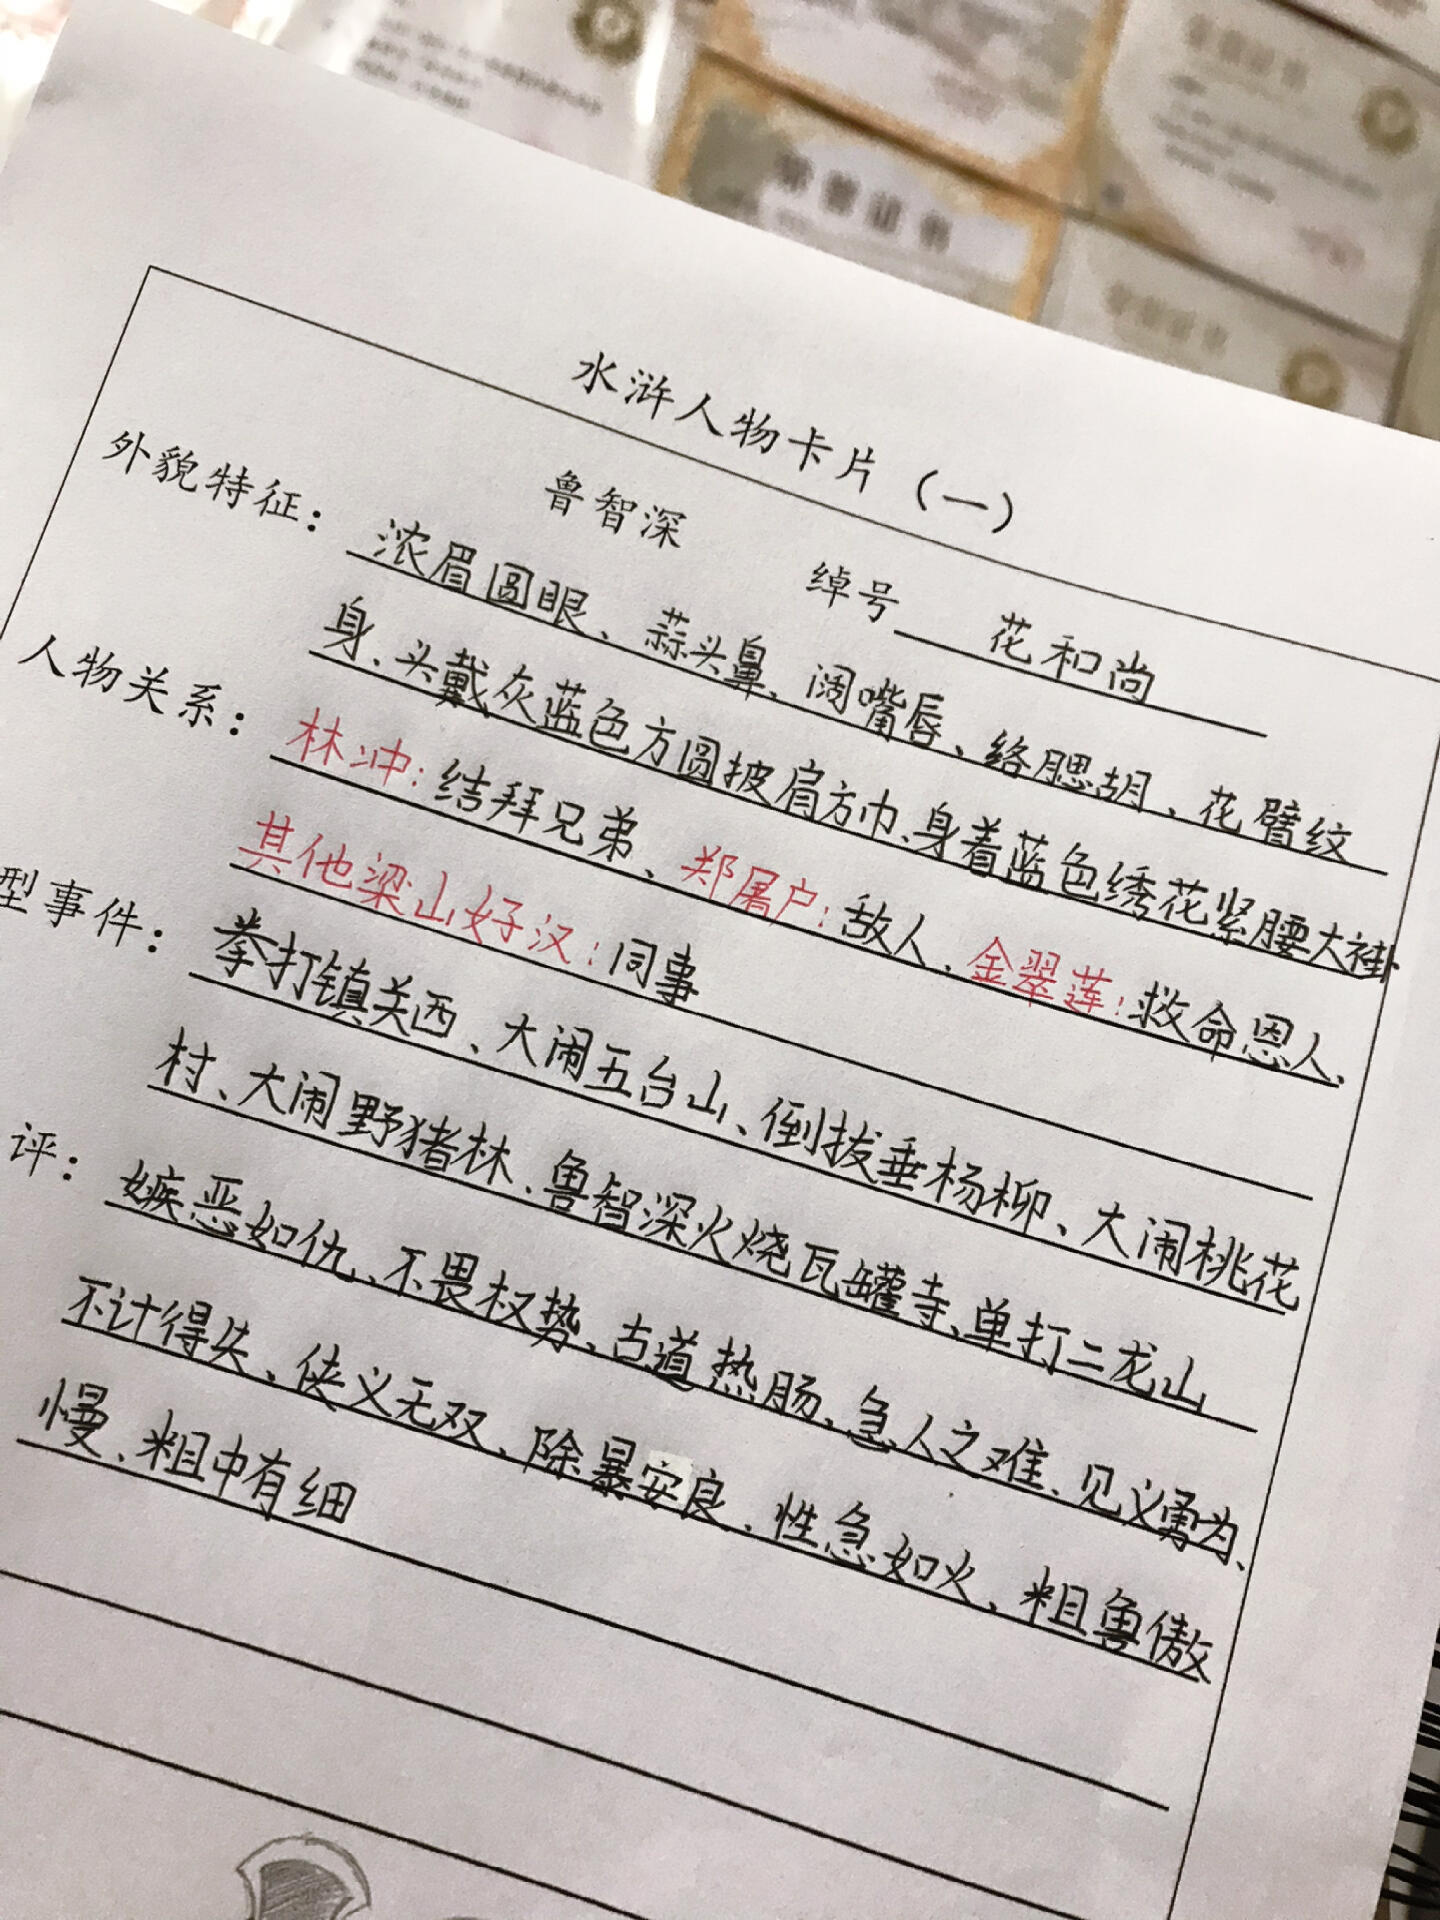 荣誉证书
水浒人物卡片（一）
鲁智深 绰号 花和尚
外貌特征：浓眉圆眼、蒜头鼻、阔嘴唇、络腮胡、花臂纹
身、头戴灰蓝色方圆披肩方巾、身着蓝色绣花紧腰大褂
人物关系：林冲：结拜兄弟、郑屠户：敌人、金翠莲：救命恩人、
其他梁山好汉：同事
型事件：拳打镇关西、大闹五台山、倒拔垂杨柳、大闹桃花
村、大闹野猪林、鲁智深火烧瓦罐寺、单打二龙山
评：嫉恶如仇、不畏权势、古道热肠、急人之难、见义勇为、
不计得失、侠义无双、除暴安良、性急如火、粗鲁傲
慢、粗中有细